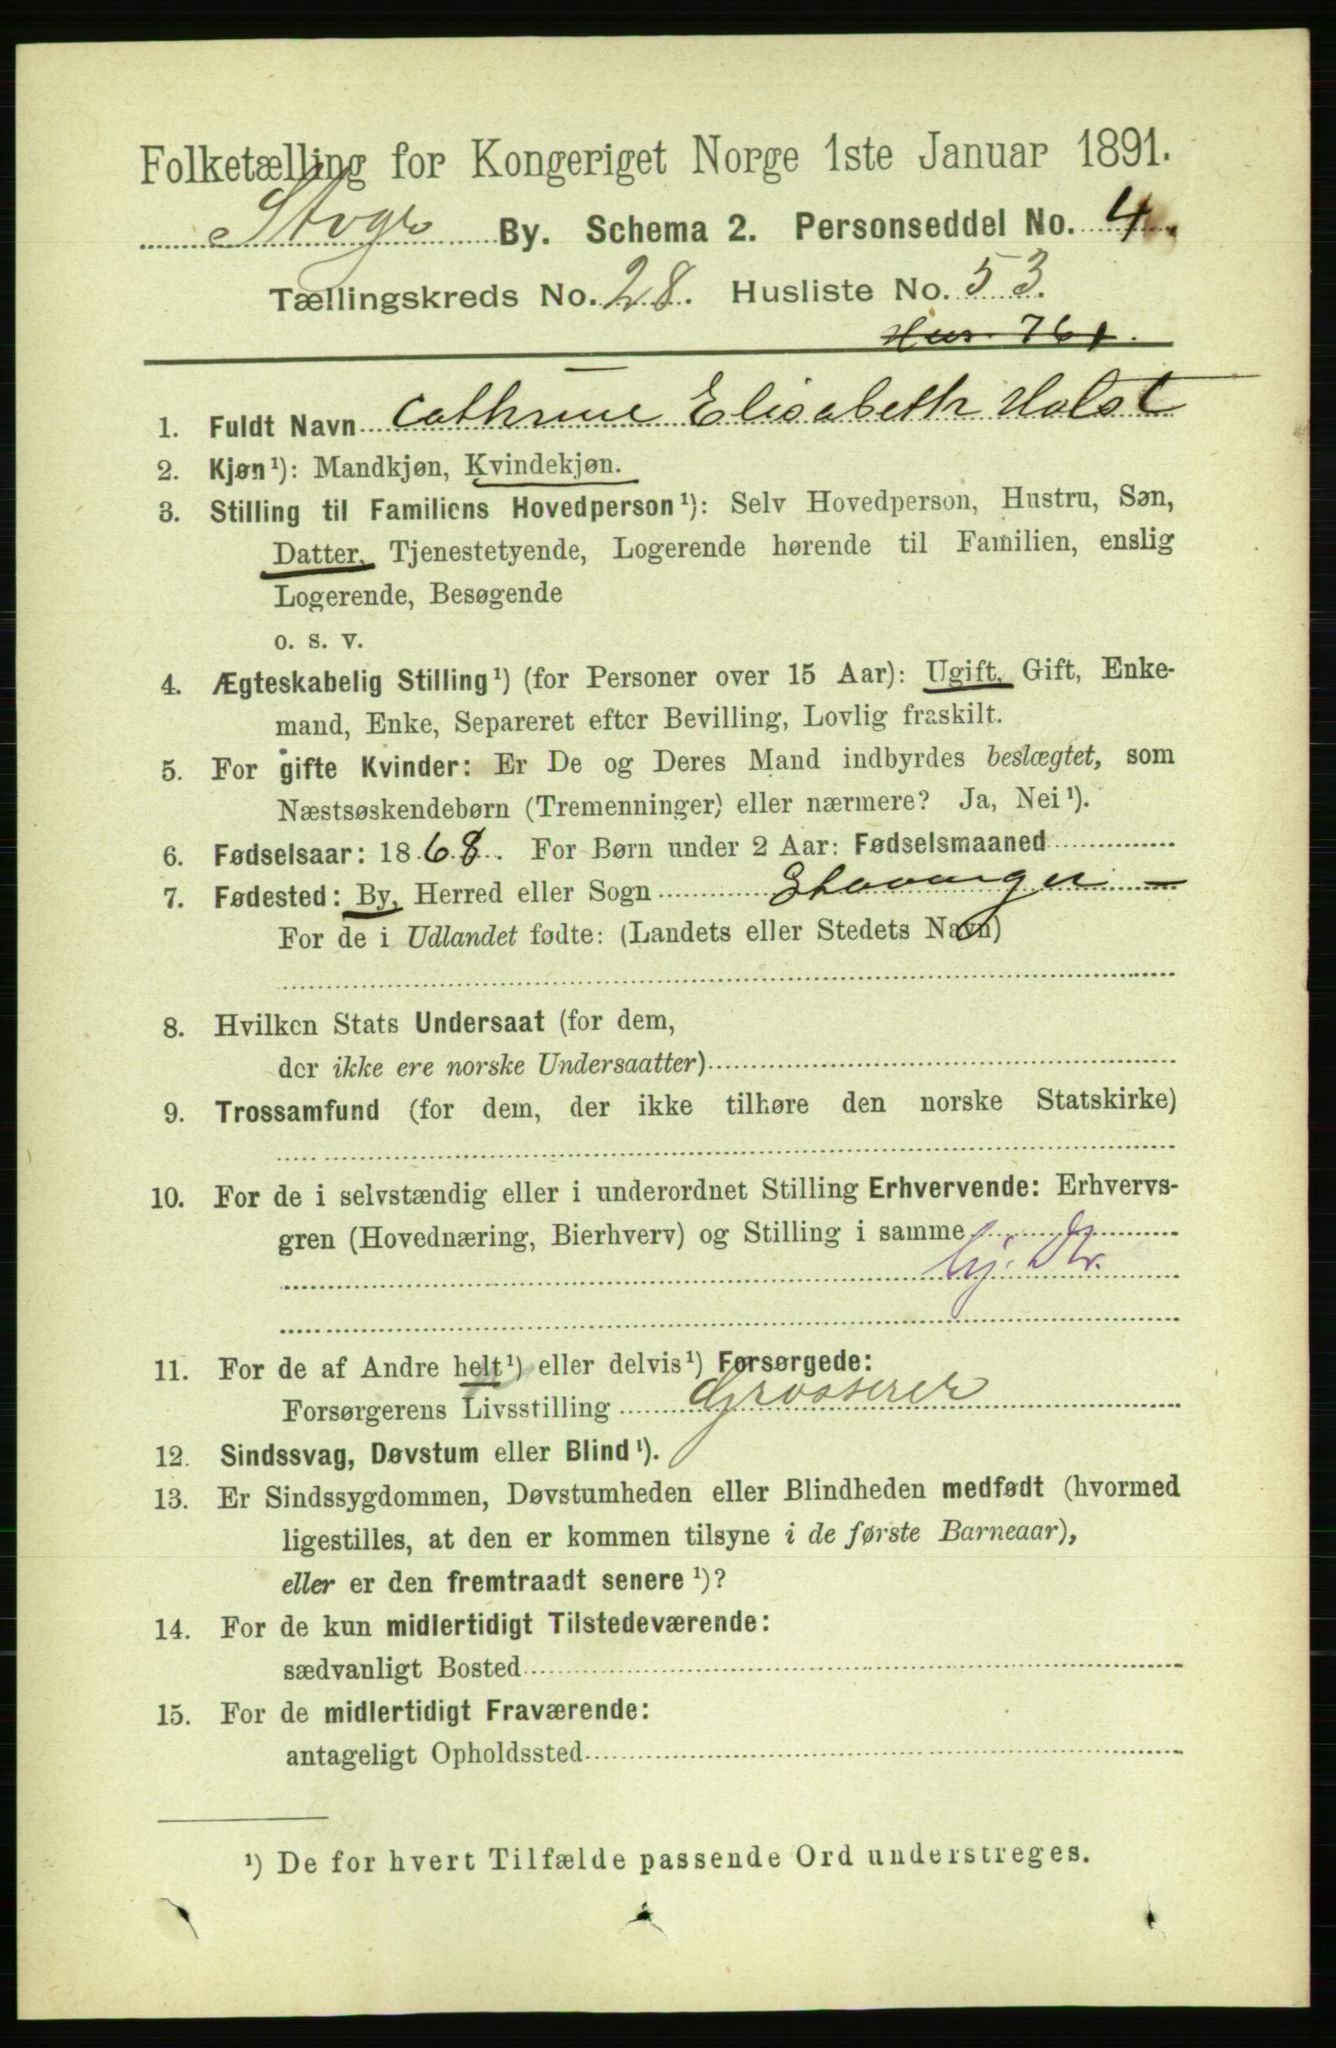 Folketælling for Kongeriget Norge 1ste Januar 1891.
Stvgr By. Schema 2. Personseddel No. 4.
Tællingskreds No. 28. Husliste No. 53.
Hus. 761.
1. Fuldt Navn Cathrine Elisabeth Holst
2. Kjøn¹): Mandkjøn, Kvindekjøn.
3. Stilling til Familiens Hovedperson¹): Selv Hovedperson, Hustru, Søn,
Datter, Tjenestetyende, Logerende hørende til Familien, enslig
Logerende, Besøgende
o. s. v.
4. Ægteskabelig Stilling¹) (for Personer over 15 Aar): Ugift, Gift, Enke-
mand, Enke, Separeret efter Bevilling, Lovlig fraskilt.
5. For gifte Kvinder: Er De og Deres Mand indbyrdes beslægtet, som
Næstsøskendebørn (Tremenninger) eller nærmere? Ja, Nei¹).
6. Fødselsaar: 1868. For Børn under 2 Aar: Fødselsmaaned
7. Fødested: By, Herred eller Sogn Stavanger
For de i Udlandet fødte: (Landets eller Stedets Navn)
8. Hvilken Stats Undersaat (for dem,
der ikke ere norske Undersaatter)
9. Trossamfund (for dem, der ikke tilhøre den norske Statskirke)
10. For de i selvstændig eller i underordnet Stilling Erhvervende: Erhvervs-
gren (Hovednæring, Bierhverv) og Stilling i samme
11. For de af Andre helt¹) eller delvis¹) Forsørgede:
Forsørgerens Livsstilling Grosserer
12. Sindssvag, Døvstum eller Blind¹).
13. Er Sindssygdommen, Døvstumheden eller Blindheden medfødt (hvormed
ligestilles, at den er kommen tilsyne i de første Barneaar),
eller er den fremtraadt senere¹)?
14. For de kun midlertidigt Tilstedeværende:
sædvanligt Bosted
15. For de midlertidigt Fraværende:
antageligt Opholdssted
¹) De for hvert Tilfælde passende Ord understreges.